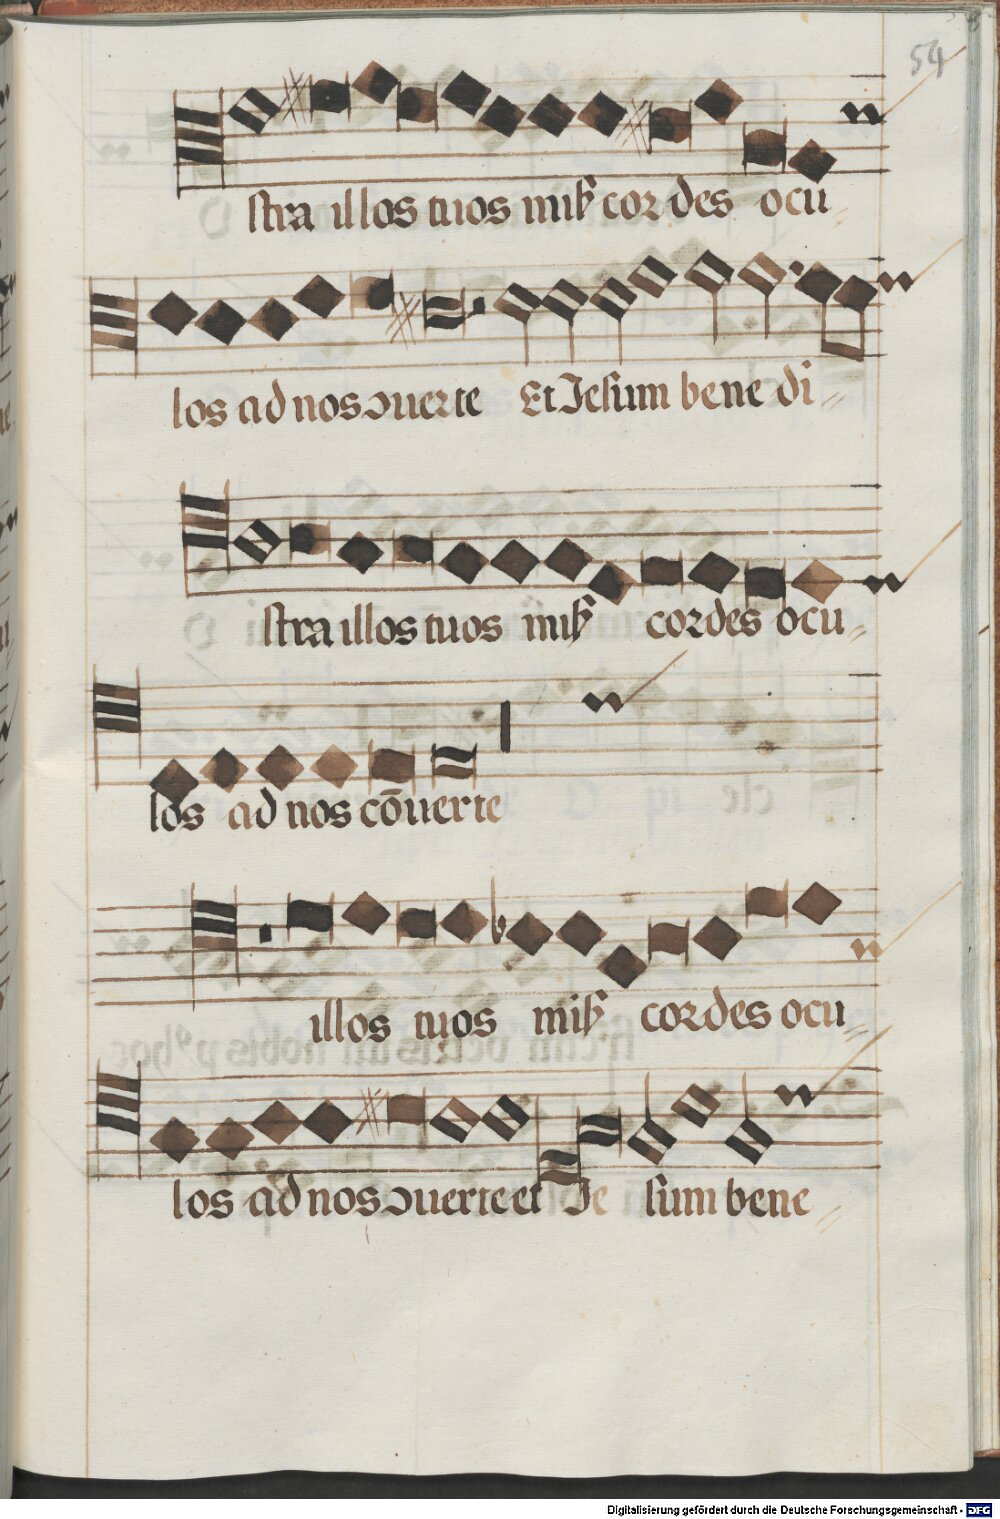 54
stra illos tuos mi&#x17F;&#xEBA2; cordes ocu
los ad nos ɔuerte Et Jesum bene di
stra illos tuos cordes ocu
los ad nos cōuerte
illos tuos cordes ocu
los ad nos ɔuerte et Je sum bene
Digitalisierung gefördert durch die Deutsche Forschungsgemeinschaft - DFG